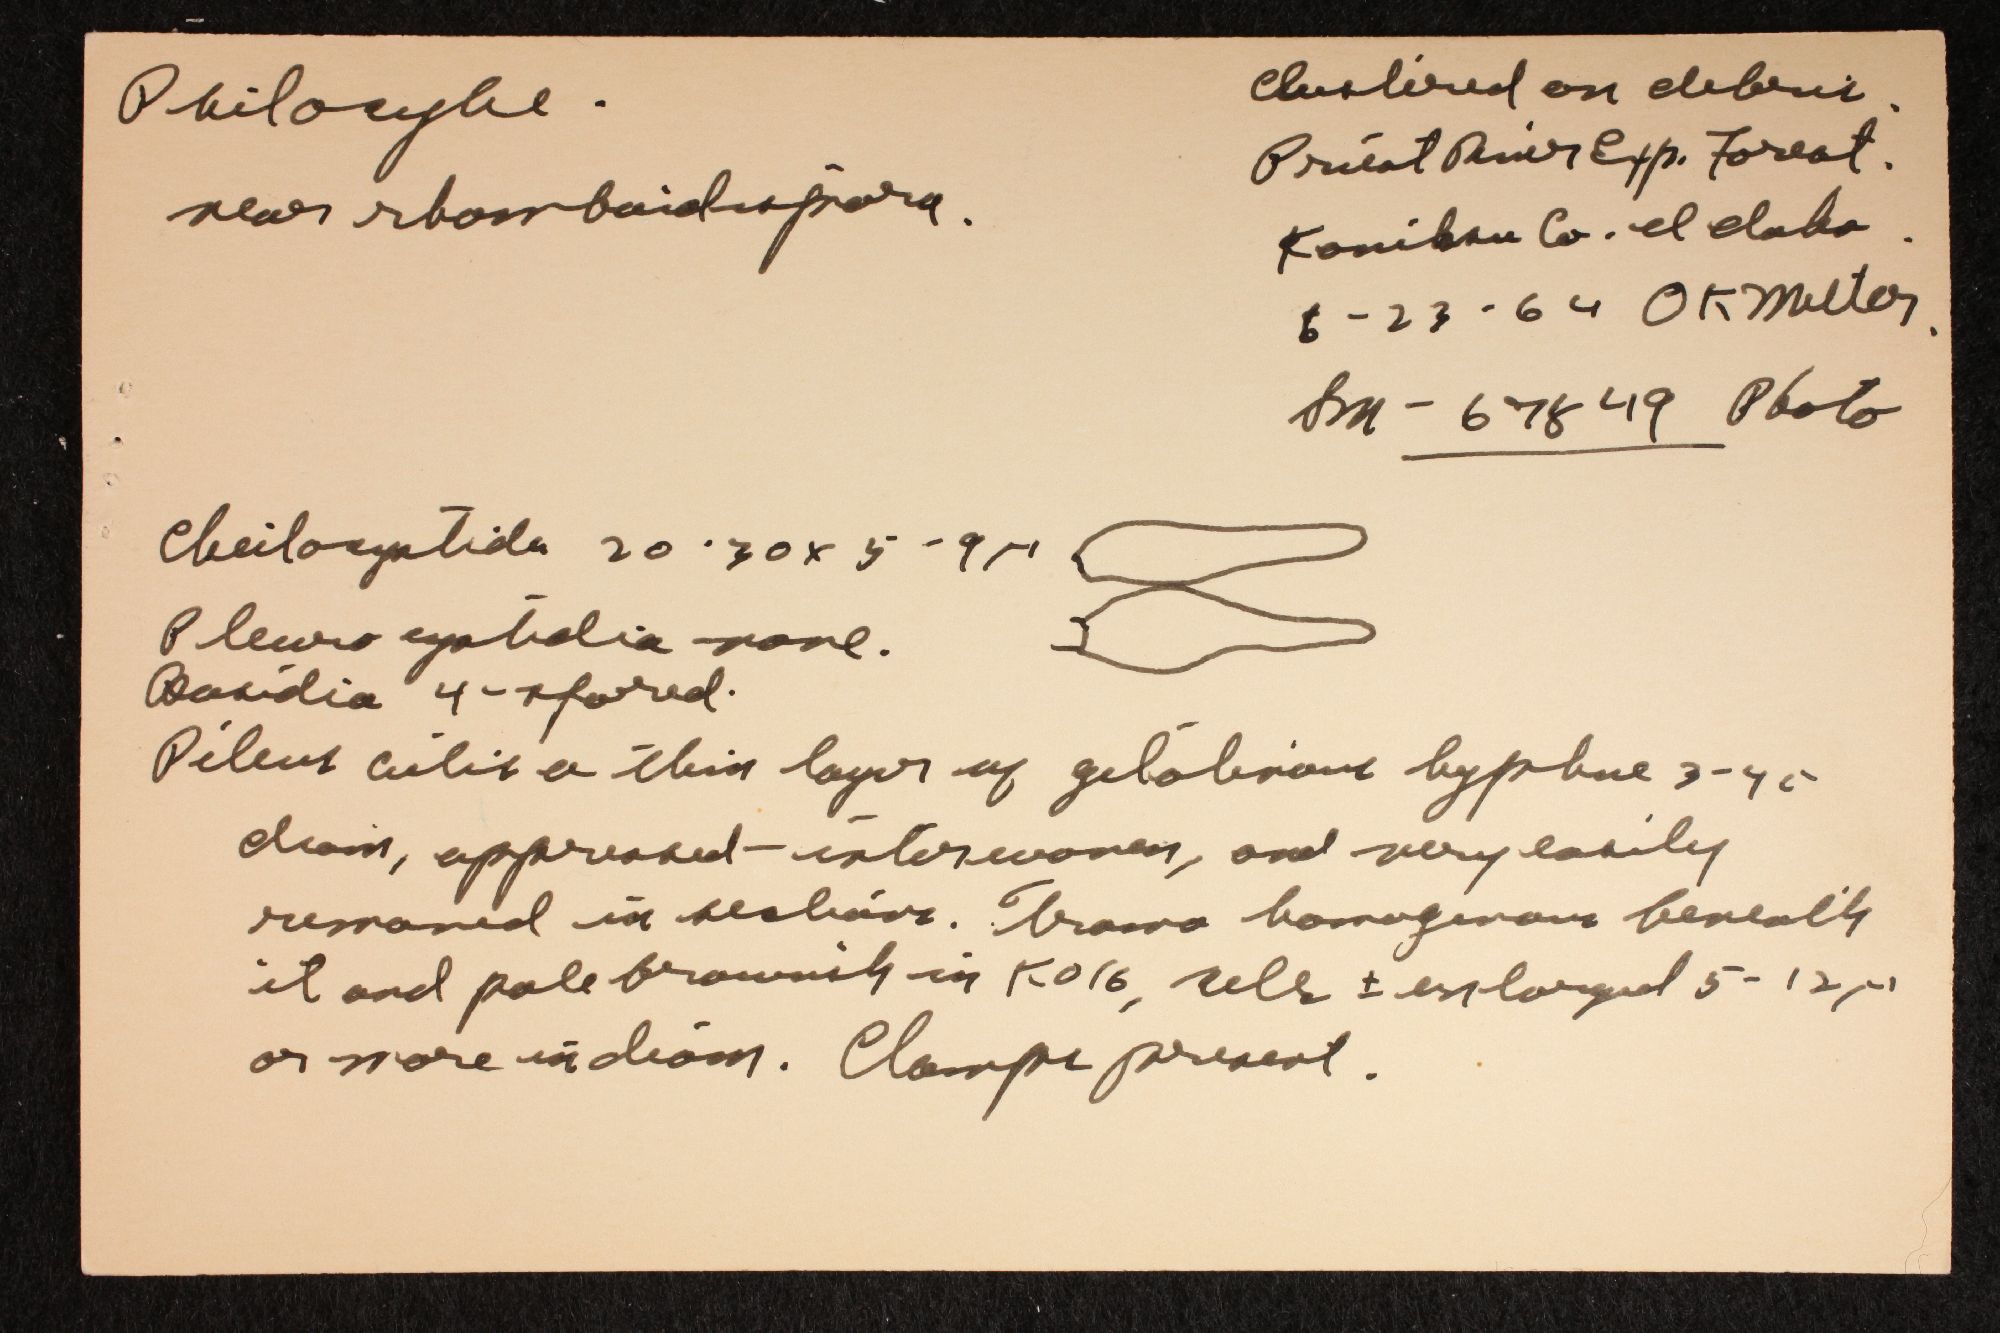 Psilocybe.
near rhomboidispora.
Clustered on debris.
Priest River Exp. Forest.
Kaniksu Co. Idaho.
6-23-64 OK Miller.
Sm-67849 Photo
Cheilocystidia 20-30 x 5-9 µ
Pleurocystidia none.
Basidia 4-spored.
Pileus cutis a thin layer of gelatinous hyphae 3-4
diam, appressed-interwoven, and very easily
removed in sections. Trama homogenous beneath
it and pale brownish in KOH, cells ± enlarged 5-12 µ
or more in diam. Clamps present.